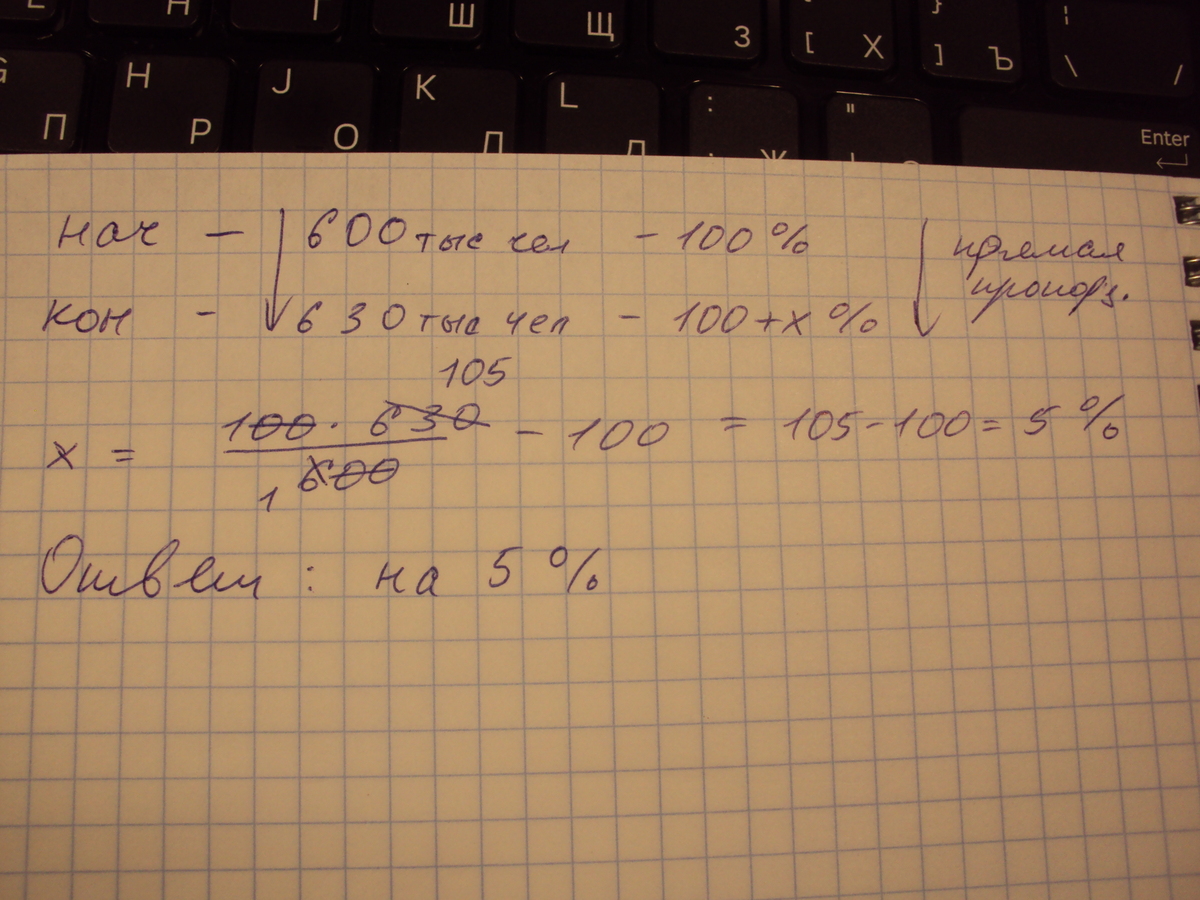 Н Г Ш Щ З [ Х { } ] Ъ \ /
G П H Р J О K Л L Д : Ж " Enter
нач – 600 тыс чел – 100 % прямая
пропорц.
кон – 630 тыс чел – 100 + х %
105
х = 100 · 630 / 600 – 100 = 105 – 100 = 5 %
1
Ответ : на 5 %